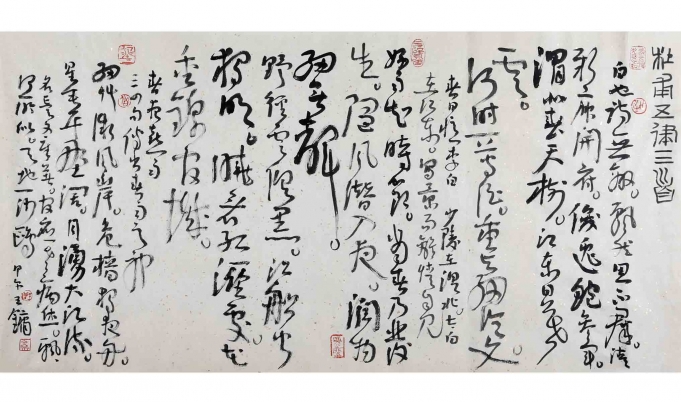 杜甫五律三首
白也詩無敵。飄然思不群。清
新庾開府。俊逸鮑參軍。
渭北春天樹。江東日暮
雲。
何時一尊酒。重與細論文。
春日憶李白 少陵在渭北太白
在江東。寫景而離情自見
好雨知時節。當春乃發
生。隨風潛入夜。潤物
細無聲。
野徑雲俱黑。江船火
獨明。曉看紅濕處花
重錦官城。
春夜喜雨
三四句傳出春雨之神
細草微風岸。危檣獨夜舟。
星垂平野闊。月湧大江流。
名豈文章著。官應老病休。飄
何所似。天地一沙鷗 甲午王鏞